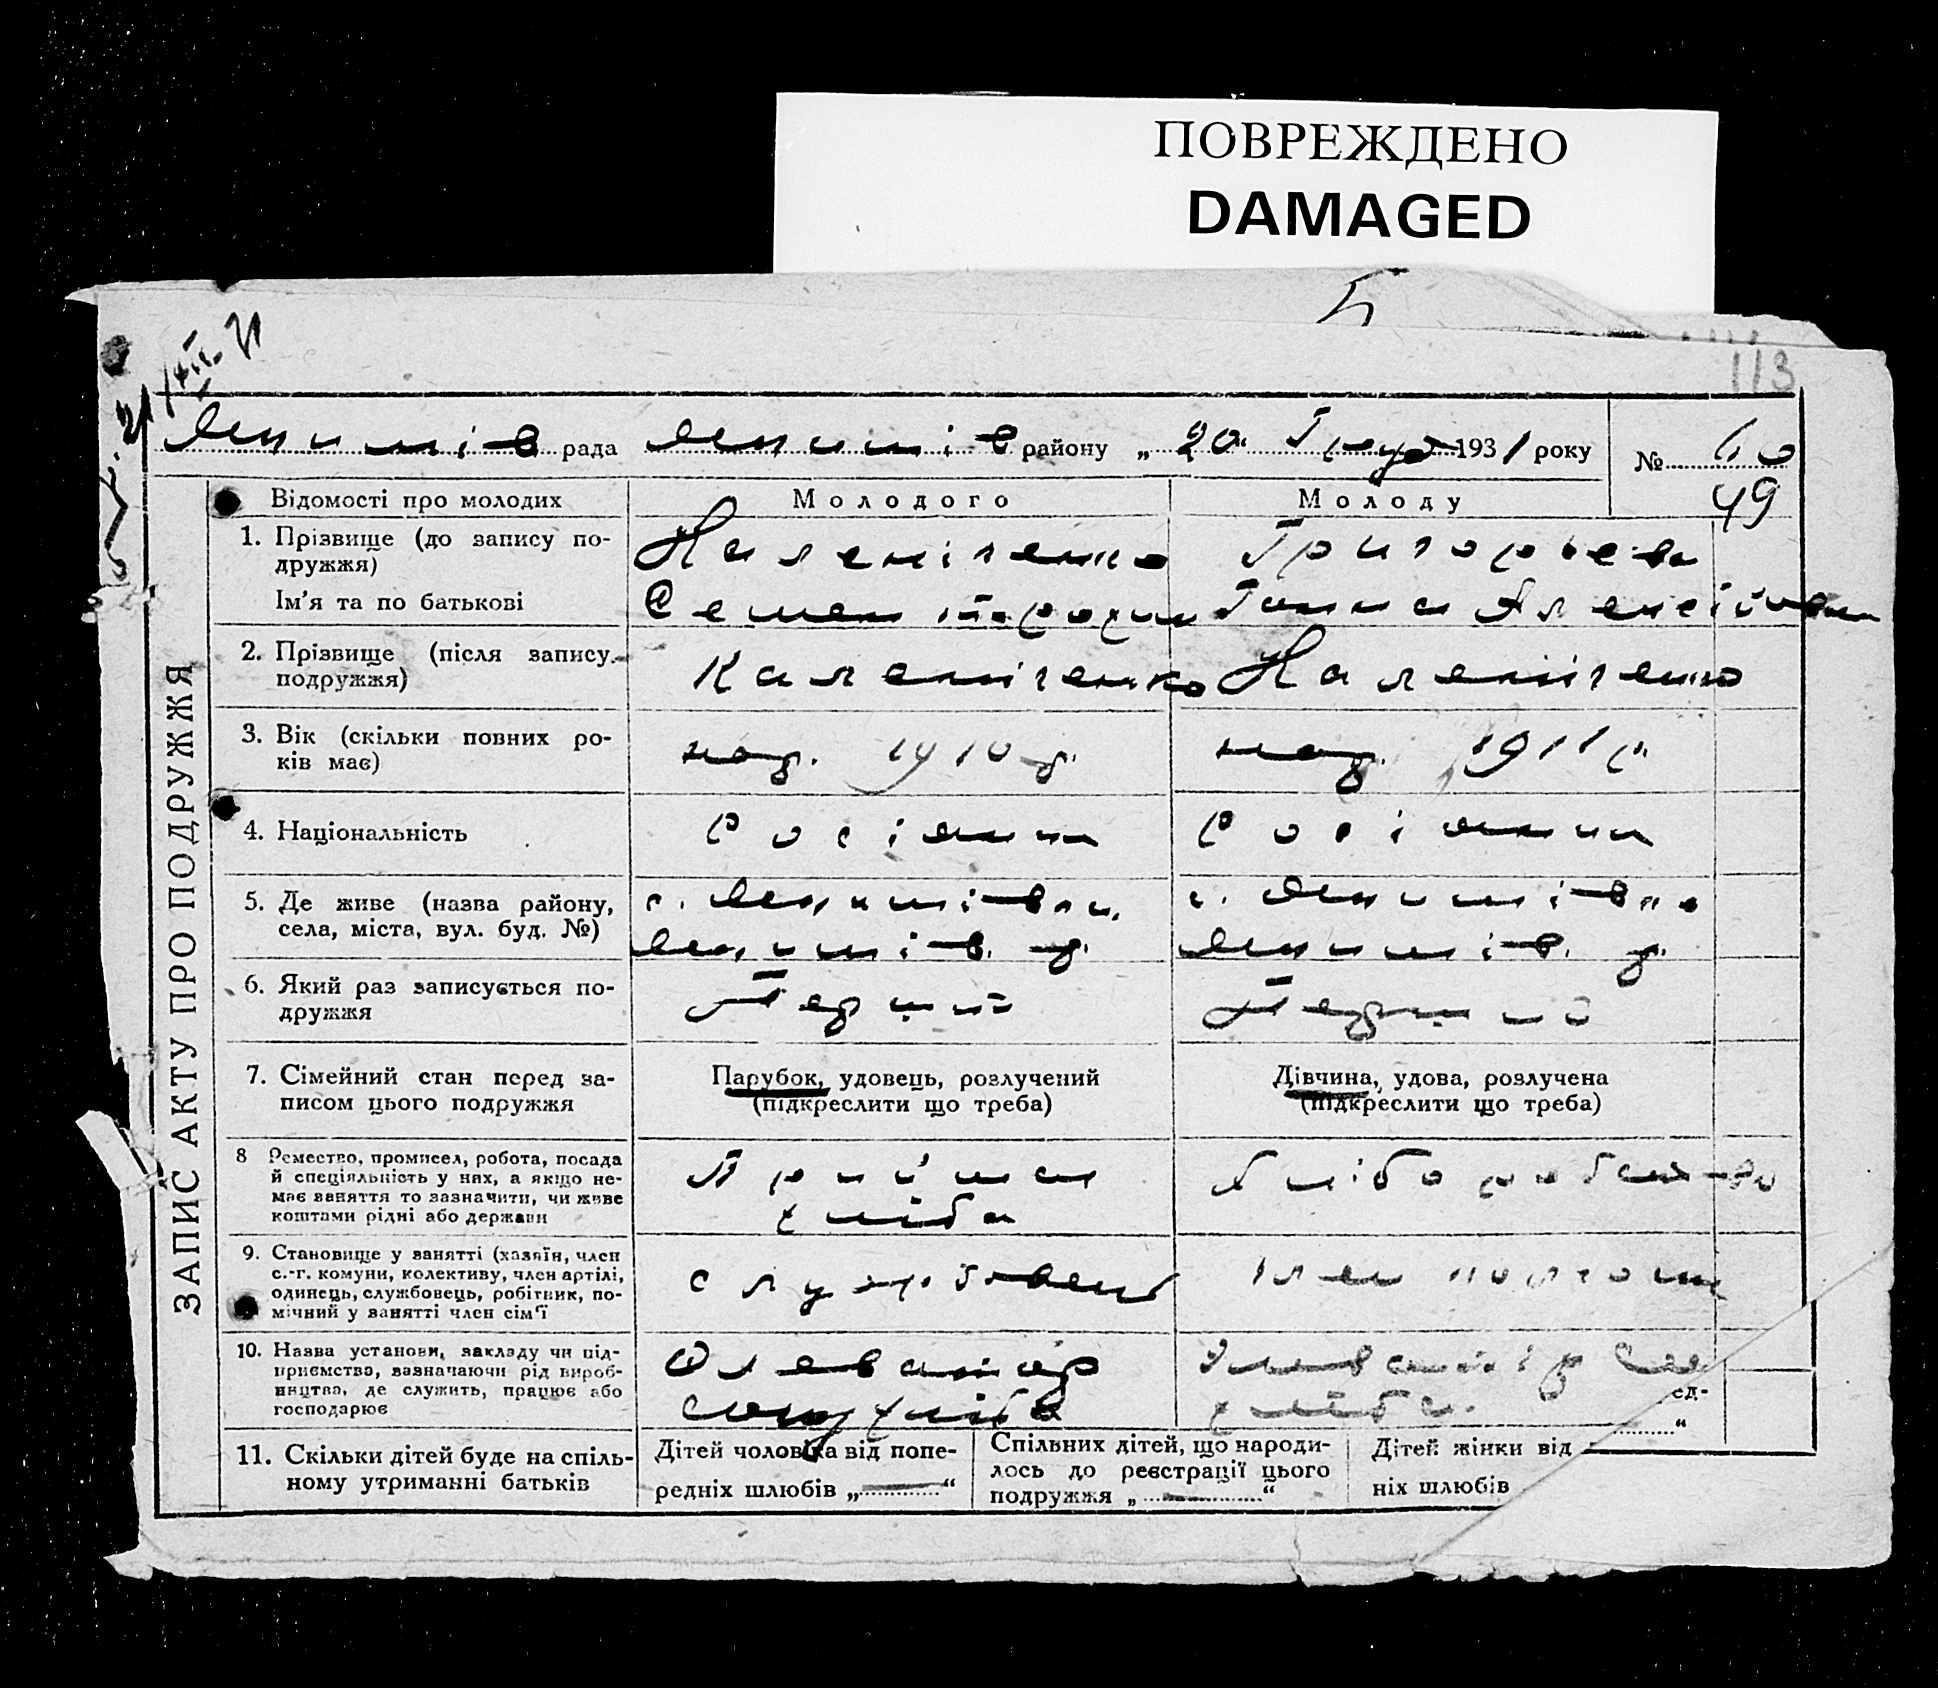 ПОВРЕЖДЕНО
DAMAGED
113
Якимів рада Якимів району „20“ Груд 1931 року
№ 60
49
ЗАПИС АКТУ ПРО ПОДРУЖЖЯ
Відомості про молодих
Молодого
Молоду
1. Прізвище (до запису по-
дружжя)
Григорьева
Ім'я та по батькові
Семен
Ганна Алексіївна
2. Прізвище (після запису
подружжя)
3. Вік (скільки повних ро-
ків має)
нар. 1910 р.
нар. 1911 р.
4. Національність
Росіянин
Росіянин
5. Де живе (назва району,
села, міста, вул. буд. №)
с. Якимівка
Якимів. р.
с. Якимівка
Якимів. р.
6. Який раз записується по-
дружжя
Перший
Перший
7. Сімейний стан перед за-
писом цього подружжя
Парубок, удовець, розлучений
(підкреслити що треба)
Дівчина, удова, розлучена
(підкреслити що треба)
8 Ремество, промисел, робота, посада
й спеціяльність у них, а якщо не-
має заняття то зазначити, чи живе
коштами рідні або держави
хліба
9. Становище у занятті (хазяїн, член
с.-г. комуни, колективу, член артілі,
одинець, службовець, робітник, по-
мічний у занятті член сім'ї
службовець
10. Назва установи, закладу чи під-
приємства, зазначаючи рід вироб-
ництва, де служить, працює або
господарює
Элеватор
Союзхліба
хліба.
11. Скільки дітей буде на спіль-
ному утриманні батьків
Дітей чоловіка від попе-
редніх шлюбів „ “
Спільних дітей, що народи-
лось до реєстрації цього
подружжя „ “
Дітей жінки від
ед-
ніх шлюбів
“